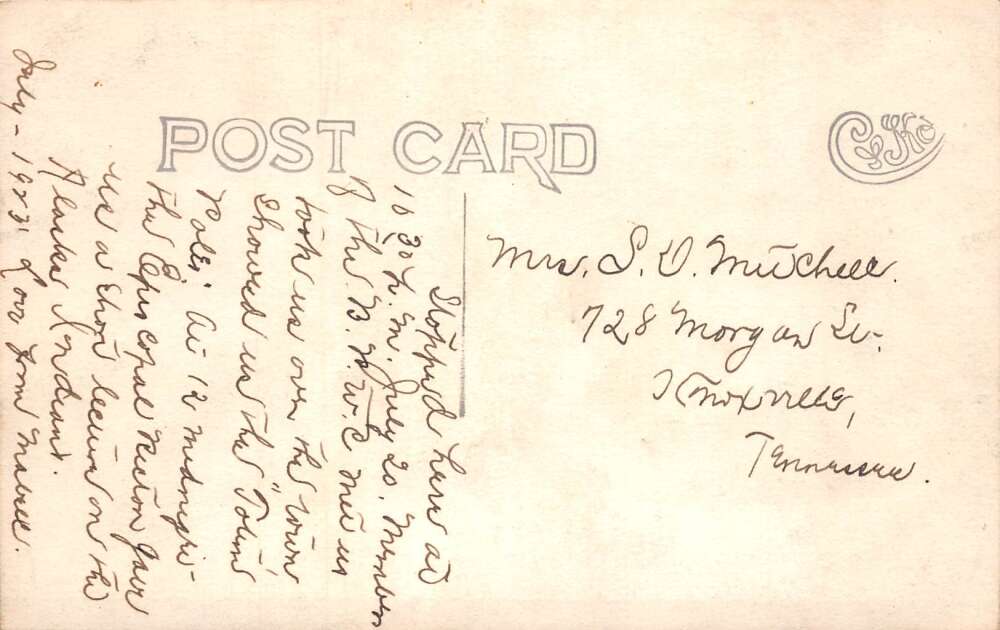 POST CARD
C Ko
Stopped here at
10 30 P. M. July 20. Members
of the B. P. W. C met us
took us over the town
Showed us the "Totem
Poles" At 12 midnight
the Episcopal Rector gave
us a short lecture on the
Alaska Indians.
July - 1923. Love from Mabell.
Mrs. S. D. Mitchell.
728 Morgan St.
Knoxville,
Tennessee.